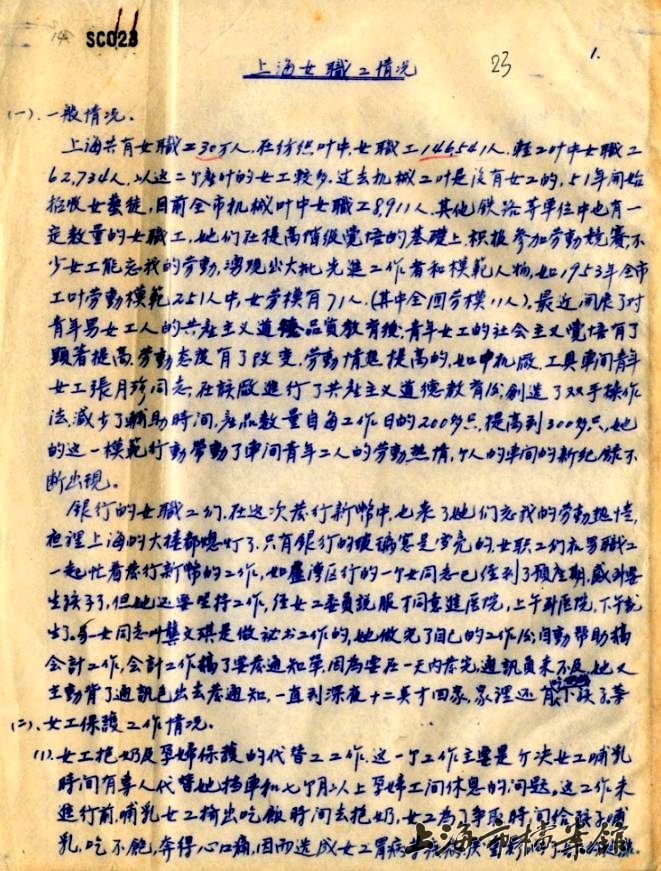 14 SC023
上海女職工情况 23 1.
(一)、一般情况.
上海共有女職工30万人.在纺织叶中,女職工146,541人,輕工叶中女職工
62,734人,以这二个産叶的女工較多.过去机械工叶是没有女工的,51年開始
招收女藝徒,目前全市机械叶中女職工8,911人.其他鉄路等单位中也有一
定数量的女職工,她们在提高階級覺悟的基礎上积极参加劳動競賽,不
少女工能忘我的劳動,湧現出大批先進工作者和模範人物,如1953年全市
工叶劳動模範251人中,女劳模有71人.(其中全国劳模11人).最近開展了对
青年男女工人的共産主义道德品質教育後,青年女工的社会主义覺悟有了
顕著提高,劳動态度有了改变,劳動情热提高的,如中机廠,工具車间青年
女工張月珍同志,在該廠進行了共産主义道德教育后,創造了双手操作
法,減少了輔助時间,産品数量自每工作日的200多只,提高到300多只,她
的这一模範行動帶動了車间青年工人的劳動热情,个人的車间的新紀録不
断出現。
銀行的女職工们,在这次發行新幣中,也来了她们忘我的劳動热情,
夜裡上海的大樓都熄灯了,只有銀行的玻璃窗是雪亮的,女职工们和男職工
一起忙着發行新幣的工作,如盧湾区行的一个女同志已经到了預産期,感到要
生孩子了,但她还要坚持工作,经女工委員説服才同意進医院,上午到医院,下午就
生了.另一女同志叶龔文琪是做祕书工作的,她做完了自己的工作后,自動帮助搞
会計工作,会計工作搞了要發通知单,因為要在一天内發完,通訊員来不及,她又
主動背了通訊包出去發通知,一直到深夜十二点才回家,家裡还有孩子等
(二)、女工保護工作情况.
(1).女工抱奶及孕婦保護的代替工工作.这一个工作主要是解决女工哺乳
時间有專人代替她档車和七个月以上孕婦工间休息的问题。这工作未
進行前,哺乳女工擠出吃飯時间去抱奶,女工為了争取時间给孩子哺
乳,吃不飽,奔得心口痛,因而造成女工胃病
上海市檔案館